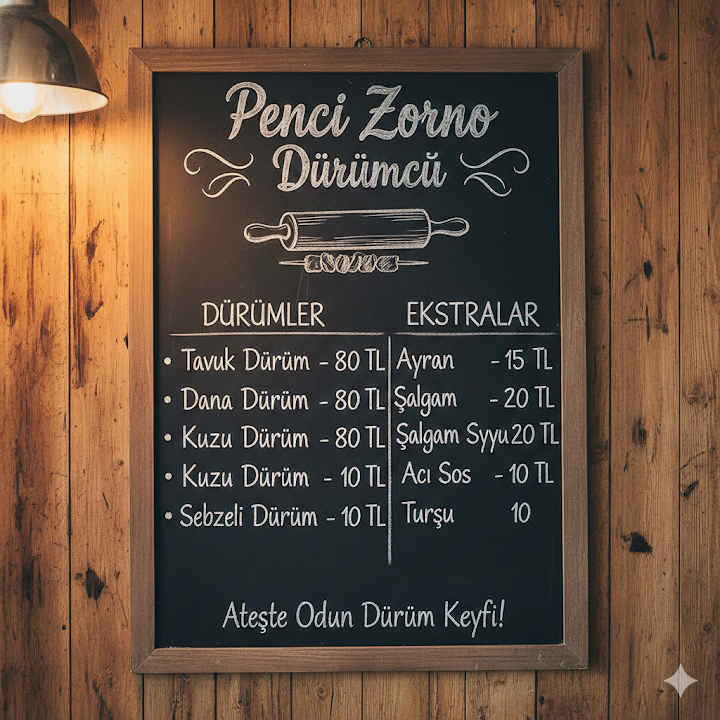 Penci Zorno
Dürümcŭ
DÜRÜMLER
• Tavuk Dürüm - 80 TL
• Dana Dürüm - 80 TL
• Kuzu Dürüm - 80 TL
• Kuzu Dürüm - 10 TL
• Sebzeli Dürüm - 10 TL
EKSTRALAR
Ayran - 15 TL
Şalgam - 20 TL
Şalgam Syyu 20 TL
Acı Sos - 10 TL
Turşu 10
Ateşte Odun Dürüm Keyfi!